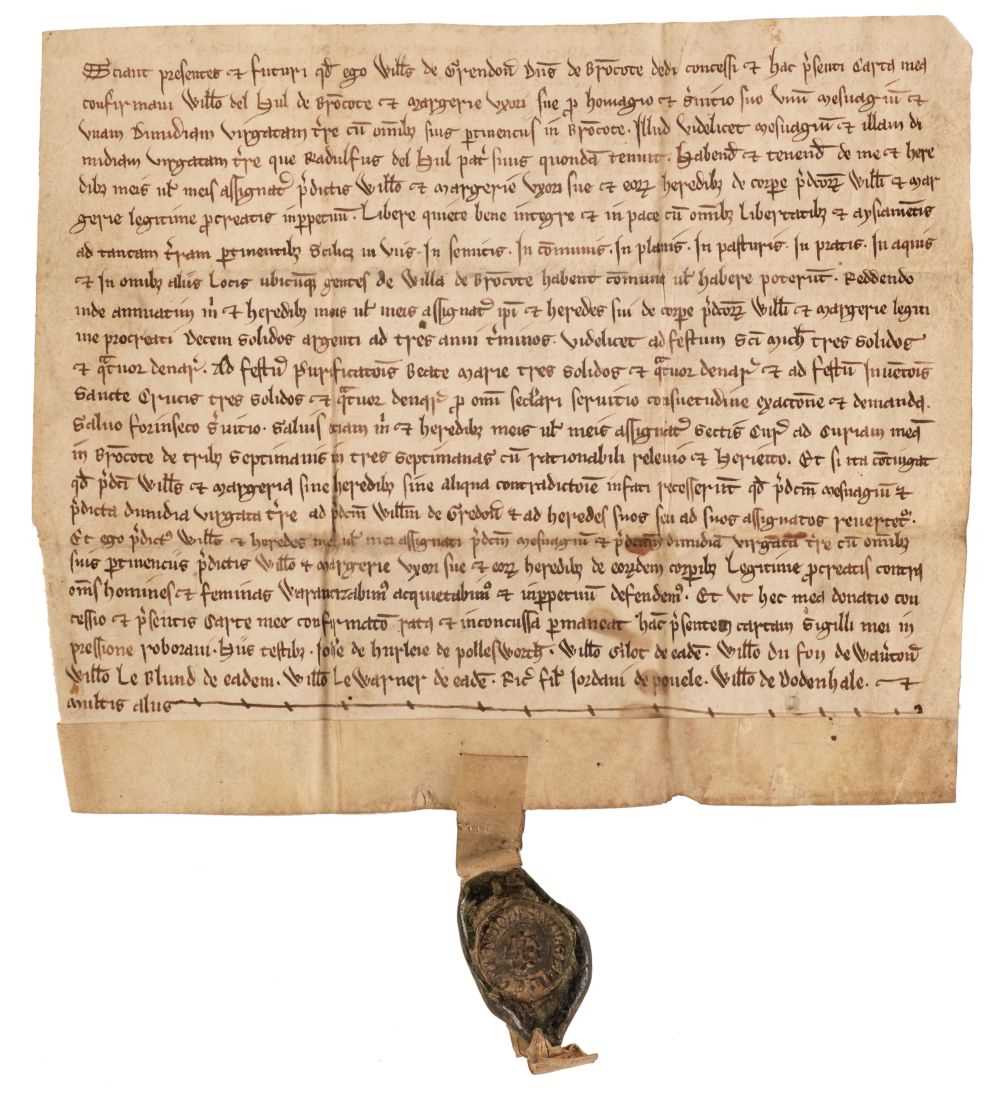 Sciant presentes et futuri qd ego Wills de Grendon Dns de Brocote dedi concessi et hac psenti Carta mea
confirmavi Willo del Hul de Brocote et Margerie Uxori sue p homagio et svitio suo unu mesuagiu et
unam Dimidiam Virgatam tre cu omib suis ptinenciis in Brocote. Illud videlicet mesuagiu et illam di
midiam virgatam tre que Radulfus del Hul pat suus quondã tenuit. Habend et tenend de me et here
dib meis ul meis assignat pdictis Willo et Margerie Uxori sue et eor heredib de corpe pdcor Willi et Mar
gerie legitime pcreatis inppetuu. Libere quiete bene integre et in pace cu omib libertatib et aysiamtis
ad tantam tram ptinentib Scilicz in viis. In semitis. In comunis. In planis. In pasturis. In pratis. In aquis
et In omib aliis Locis ubicuq gentes de Willa de Brocote habent comuni ul habere poterut. Reddendo
inde annuatim m et heredib meis ul meis assignat ipi et heredes sui de corpe pdcor Willi et Margerie legiti
me procreati Decem solidos argenti ad tres anni tminos. videlicet ad festum Sci Mich tres solidos
et qatuor denar. Ad festu Purificatois Beate Marie tres solidos et qatuor denar et ad festu Inuetois
Sancte Crucis tres solidos et qatuor denar p omi seclari servitio consuetudine exactone et demanda.
Salvo forinseco svitio. Salvis etiam m et heredib meis ul meis assignat sectis Cur ad Curiam mea
in Brocote de trib septimanis in tres septimanas cu rationabili relevio et Herieito. Et si ita cotingat
qd pdci Wills et Margeria sine heredib sine aliqua contradictoie in fati recesserut qd pdcm mesuagiu et
pdicta dimidia virgata tre ad pdcm Willm de Gredon et ad heredes suos seu ad suos assignatos revertet.
Et ego pdict Wills et heredes mei ul mei assignati pdcm mesuagiu et pdcam dimidia virgata tre cu omib
suis ptinenciis pdictis Willo et Margerie Uxori sue et eor heredib de eordem corpib legitime pcreatis contra
oms homines et feminas warantizabim acquietabim et inppetuum defendem. Et ut hec mea donatio con
cessio et psentis Carte mee confirmato rata et inconcussa pmaneat hac psentem cartam sigilli mei in
pressione roboravi. Hiis testib. Johe de Hurleie de Pollesworth. Willo Gilot de eade. Willo du Fou de Warton
Willo Le Blund de eadem. Willo Le Warner de eade. Ric fil Jordani de povele. Willo de Dodenhale. et
multis aliis